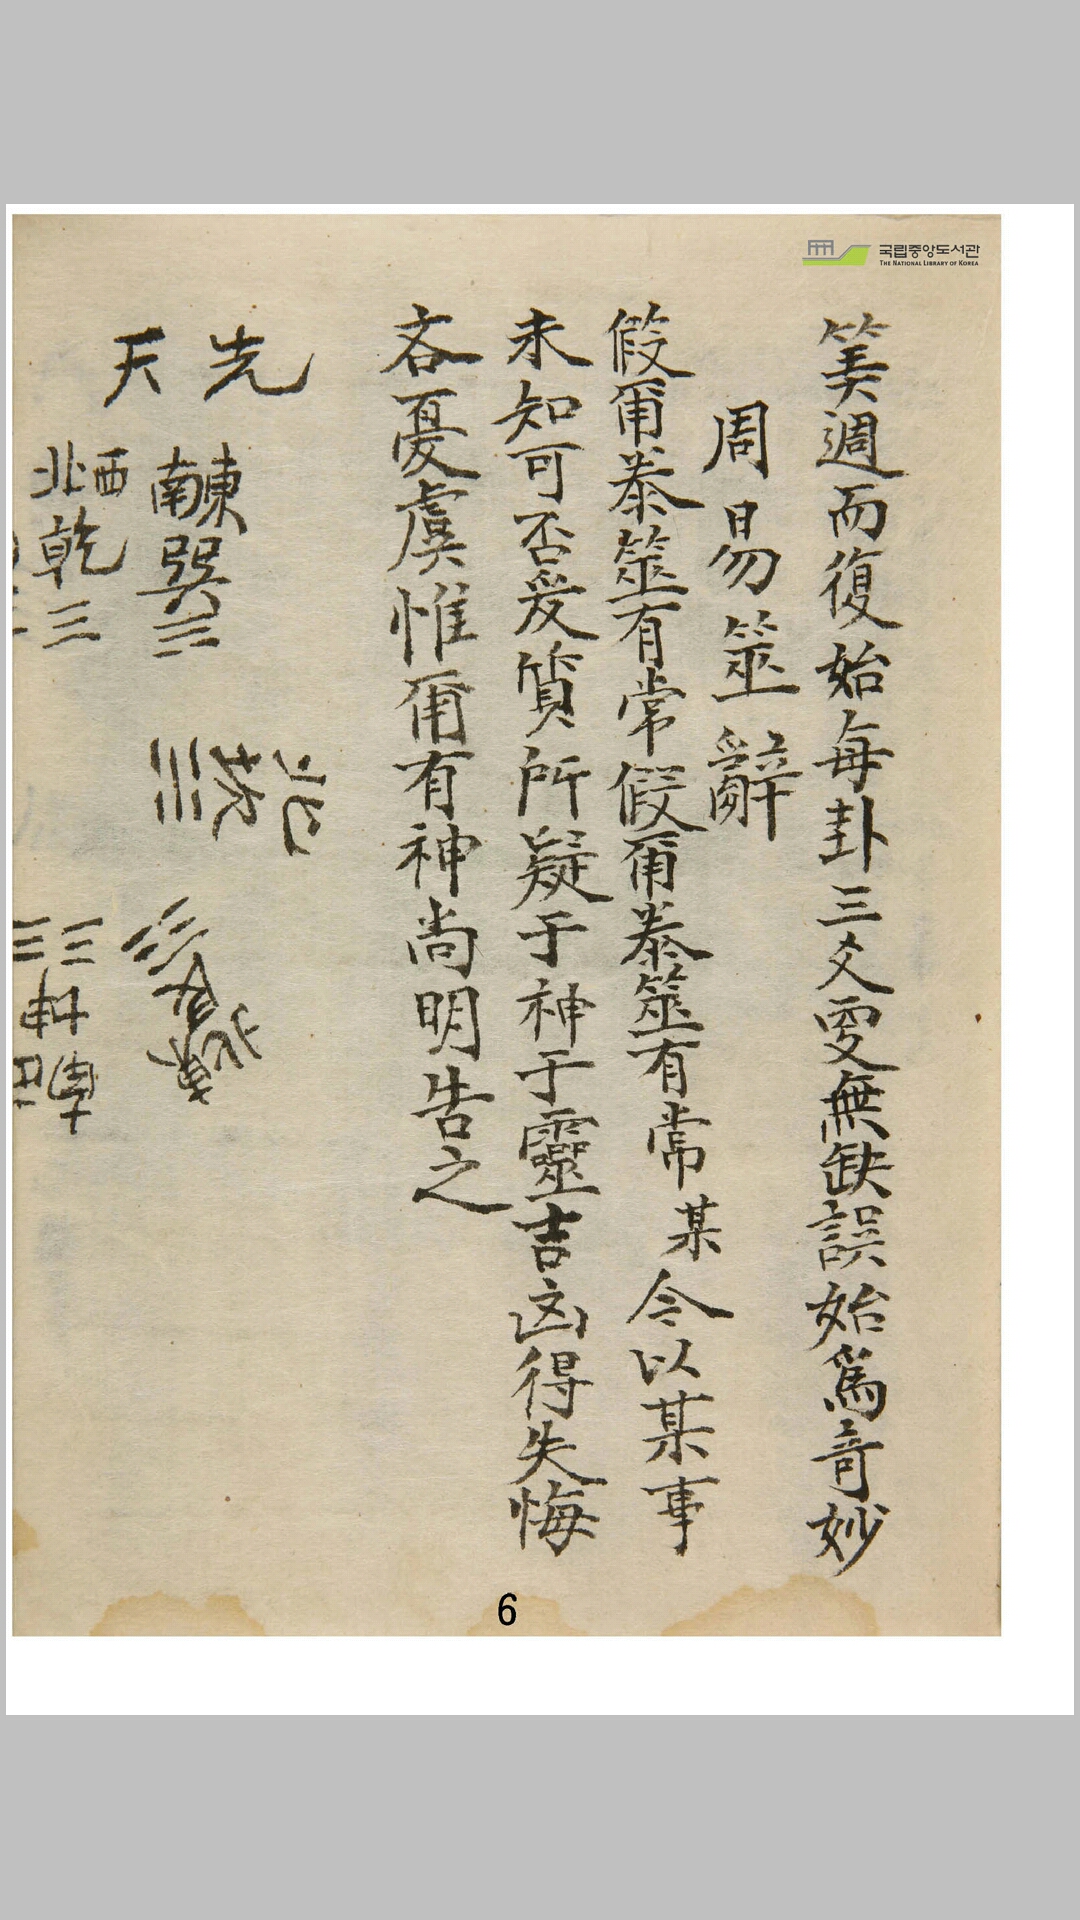 국립중앙도서관
THE NATIONAL LIBRARY OF KOREA
筭週而復始每卦三爻叓無缺誤始爲奇妙
周易筮辭
假甭泰筮有常假甭泰筮有常某今以某事
未知可否爰質所疑于神于靈吉凶得失悔
吝憂虞惟甭有神尚明告之
先天
東南巽☴
西北乾☰
北坎☵
東北艮
坤
6